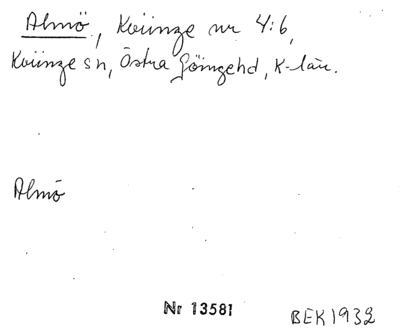 Almö, Kviinge nr 4:6,
Kviinge sn, Östra Göingehd, K-län.
Almö
Nr 13581
BEK 1932